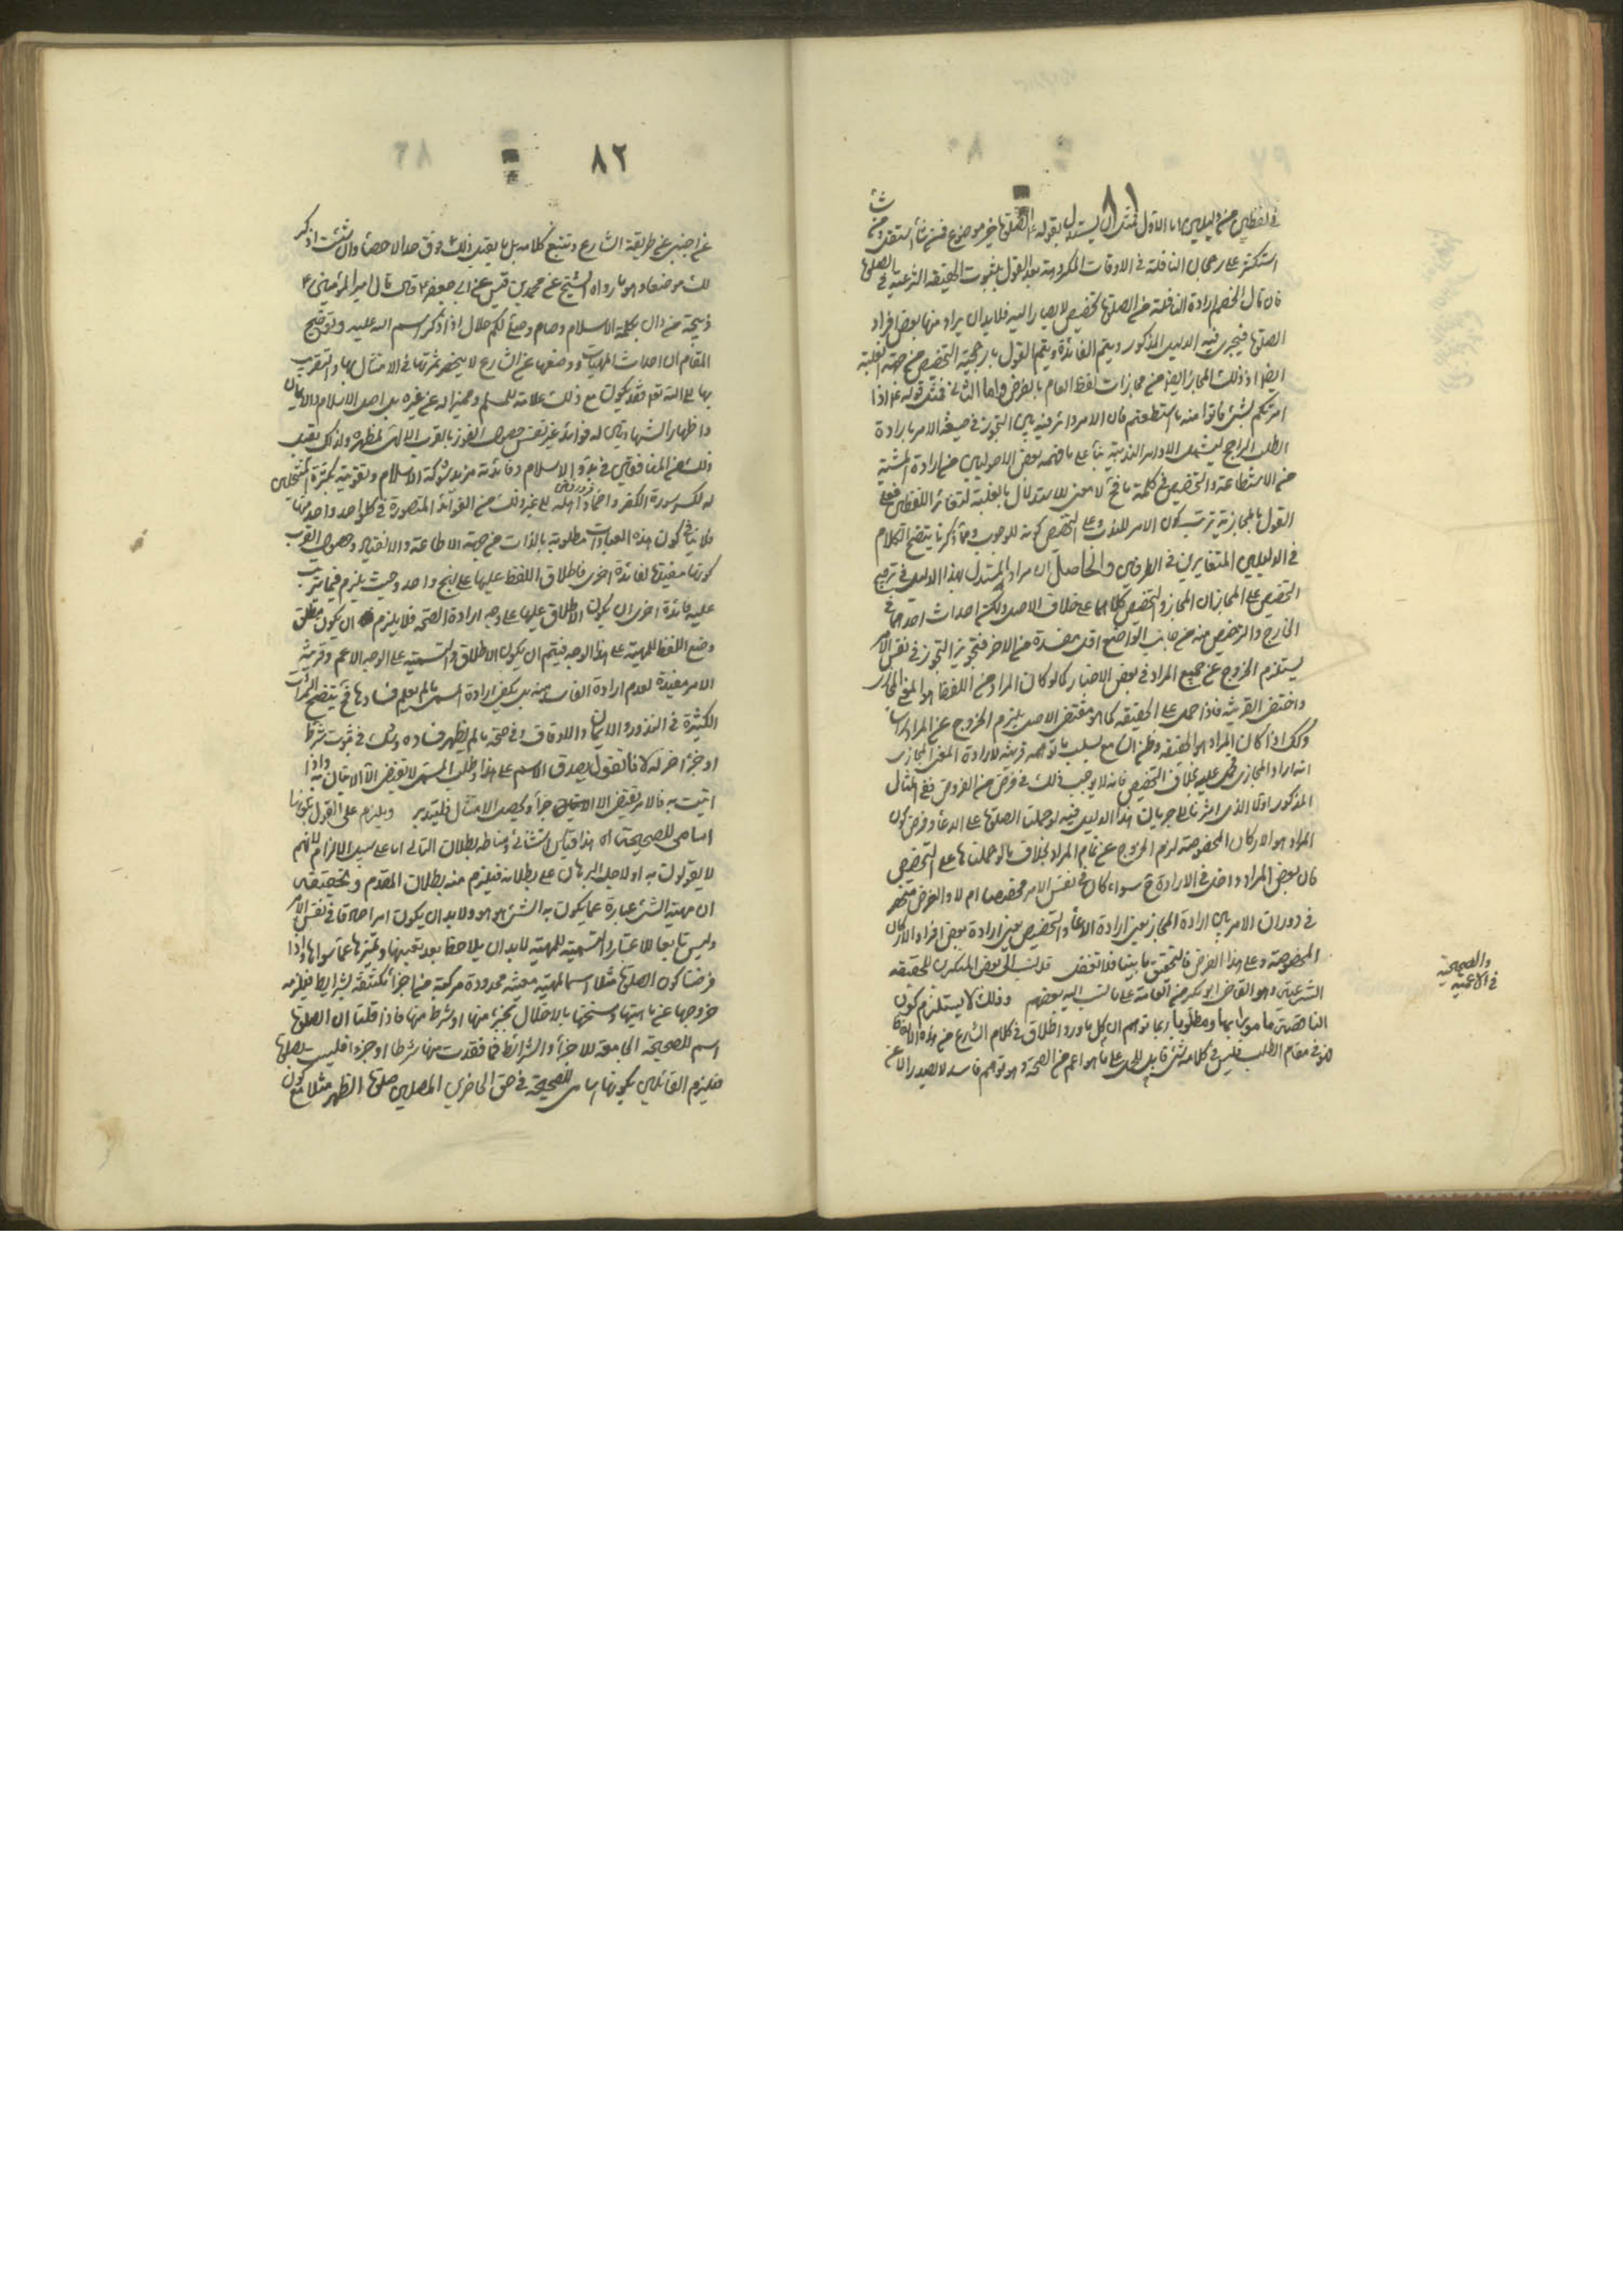 ٨١
في لفظين من دليلين اما الاول فمثل ان يستدل بقوله ع الصلوة خير موضوع فمن شاء استقل ومن شاء
استكثر على رجحان النافلة في الاوقات المكروهة بعد القول بثبوت الحقيقة الشرعية في الصلوة
فان قال الخصم ارادة النافلة من الصلوة تخصيص لا يصار اليه فلابد ان يراد منها بعض افراد
الصلوة فيجري فيه الدليل المذكور ويتم الفائدة ويتم القول بارجحية التخصيص من جهة الغلبة
ايضا اذ ذلك المجاز ايضا من مجازات لفظ العام بالفرض واما الثاني فمثل قوله ع اذا
امرتكم بشئ فاتوا منه ما استطعتم فان الامر دائر فيه بين التجوز في صيغة الامر بارادة
الطلب الراجح ليشمل الاوامر الندبية بناء على ما فهمه بعض الاصوليين من ارادة المشية
من الاستطاعة والتخصيص في كلمة ما فح لا معنى للاستدلال بالغلبة لتغاير اللفظين فعلى
القول بالمجازية ترتب كون الامر للندب وعلى التخصيص كونه للوجوب ومما ذكرنا يتضح الكلام
في الدليلين المتغايرين في الطرفين والحاصل ان مراد المستدل بهذا الدليل في ترجيح
التخصيص على المجاز ان المجاز والتخصيص كلاهما على خلاف الاصل ولكن احداث احدهما في
الخارج والترخيص منه من جانب الواضع اقل مفسدة من الاخر فتجويز التجوز في نفس الامر
يستلزم الخروج عن جميع المراد في بعض الاحيان كما لو كان المراد من اللفظ هو المعنى المجازي
واختفى القرينة فاذا حمل على الحقيقة كما هو مقتضى الاصل يلزم الخروج عن المراد راسا
وكك اذا كان المراد هو الحقيقة وظن السامع بسبب ما توهمه قرينة لارادة المعنى المجازي
انه اراد المجازي فحمل عليه بخلاف التخصيص فانه لا يوجب ذلك في فرض من الفروض ففي المثال
المذكور اولا الذي اشرنا الى جريان هذا الدليل فيه لو حملنا الصلوة على الدعاء وفرض كون
المراد هو الاركان المخصوصة لزم الخروج عن تمام المراد بخلاف ما لو حملناها على التخصيص
فان بعض المراد داخل في الارادة ح سواء كان في نفس الامر مخصصا ام لا والفرض منحصر
في دوران الامر بين ارادة المجاز يعني ارادة الدعاء والتخصيص يعني ارادة بعض افراد الاركان
المخصوصة وعلى هذا الفرض فالتحقق ما بينا فلا تغفل قد نسب الى بعض المنكرين للحقيقة
الشرعية وهو القاضي ابو بكر من العامة على ما نسب اليه بعضهم وذلك لا يستلزم كون
الناقصة مامورا بها ومطلوبا ربما توهم ان كل ما ورد اطلاق في كلام الشارع من هذه الالفاظ
فهو في مقام الطلب فليس في كلامه شئ قابل للحمل على ما هو اعم من الصحة وهو توهم فاسد لا يصدر الا عن
والصحيحية
في الاعمية
٨٢
من اجنبي عن طريقة الشارع وتتبع كلامه بل ما يفيد ذلك فوق حد الاحصاء وان شئت اذكر
لك موضعا وهو ما رواه الشيخ عن محمد بن قيس عن ابي جعفر ع قال قال امير المؤمنين ع
ذبيحة من دان بكلمة الاسلام وصام وصلى لكم حلال اذا ذكر اسم الله عليه وتوضيح
المقام ان احداث المهيات ووضعها عن الشارع لا ينحصر ثمرتها في الامتثال بها والتقرب
بها الى الله تع فقد يكون مع ذلك علامة للمسلم ومميزا له عن غيره بل اصل الاسلام والايمان
واظهار الشهادتين له فوائد غير نفس حصول الفوز بالقرب الالهي لمظهره ولذلك يقبل
ذلك من المنافقين في بدو الاسلام وفائدته مزيد شوكة الاسلام وتقويته بكثرة المنتحلين
له لكسر سورة الكفر واخماد اهله الى غير ذلك من الفوائد المتصورة في كل واحد واحد منها
فلا ينافي كون هذه العبادات مطلوبة بالذات من جهة الاطاعة والانقياد وحصول القرب
كونها مفيدة لفائدة اخرى فاطلاق اللفظ عليها على نهج واحد وحيث يلزم فيما يترتب
عليه فائدة اخرى ان يكون الاطلاق عليها على وجه ارادة الصحة فلا يلزم ان يكون مطلق
وضع اللفظ للمهية على هذا الوجه فيتم ان يكون الاطلاق والتسمية على الوجه الاعم وقرينة
الامر مفيدة لعدم ارادة الفاسد منه بل يكفي ارادة المسمى ما لم يعلم فسادها فح يتضح الثمرات
الكثيرة في النذور والايمان والاوقاف وفي صحة ما لم يظهر فساده وشك في ثبوت شرط
او جزء اخر له لانا نقول يصدق الاسم على هذا وطلب المسمى لا يقتضي الا الاتيان به واذا
اتيت به فالامر يقتضي الاجزاء ويحصل الامتثال فليتدبر ويلزم على القول بكونها
اسامي للصحيحة اه هذا قياس استثنائي ومناطه بطلان التالي اما على سبيل الالزام لانهم
لا يقولون به او لاجل البرهان على بطلانه فيلزم منه بطلان المقدم وتحقيقه
ان مهية الشئ عبارة عما يكون به الشئ هو هو ولابد ان يكون امرا صادقا في نفس الامر
وليس تابعا للاعتبار والتسمية للمهية لابد ان يلاحظ بعد تعيينها وتميزها عما سواها واذا
فرضنا كون الصلوة مثلا اسما لمهية معينة محدودة مركبة من اجزاء مكتنفة بشرايط فيلزمه
خروجها عن ماهيتها ومسخها بالاختلال بجزء منها او شرط منها فاذا قلنا ان الصلوة
اسم للصحيحة الجامعة للاجزاء والشرائط فما فقدت منها شرطا او جزءا فليست بصلوة
فيلزم القائلين بكونها اسامي للصحيحة في حق الحاضرين المصلين صلوة الظهر مثلا مع كون